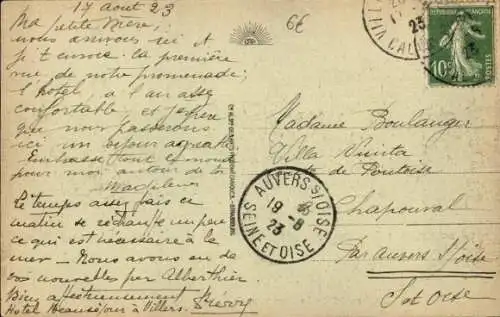 17 août 23
Ma petite Mère,
nous arrivons ici et
je t'envoie la première
vue de notre promenade;
l'hôtel a l'air assez
confortable et j'espère
que nous passerons
ici un séjour agréable
Embrasse tout le monde
pour moi autour de toi
Madeleine
Le temps assez frais ce
matin se réchauffe un peu
ce qui est nécessaire à la
mer – Nous avons eu de
vos nouvelles par Alberthier
Bien affectueusement
Hotel Beauséjour à Villers. Pierre
6€
VILLERS
CALV
23
RÉPUBLIQUE FRANÇAISE
10c
POSTES
Madame Boulanger
Villa Ninita
de Pontoise
Chaponval
Par Auvers s/Oise
S et Oise
AUVERS S/ OISE
19 -8
23
SEINE ET OISE